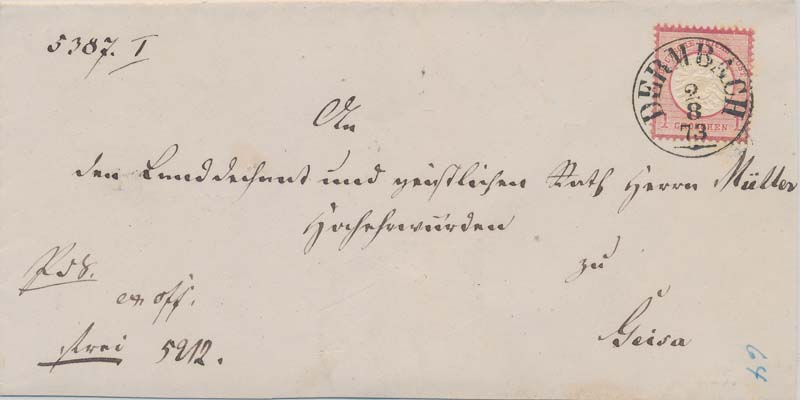 5387. I
DERMBACH
2/8
73
1 GROSCHEN 1
An
den Landdechant und geistlichen Rath Herrn Müller
Hochehrwürden
zu
Geisa
PdS.
ex off.
frei 5912.
64